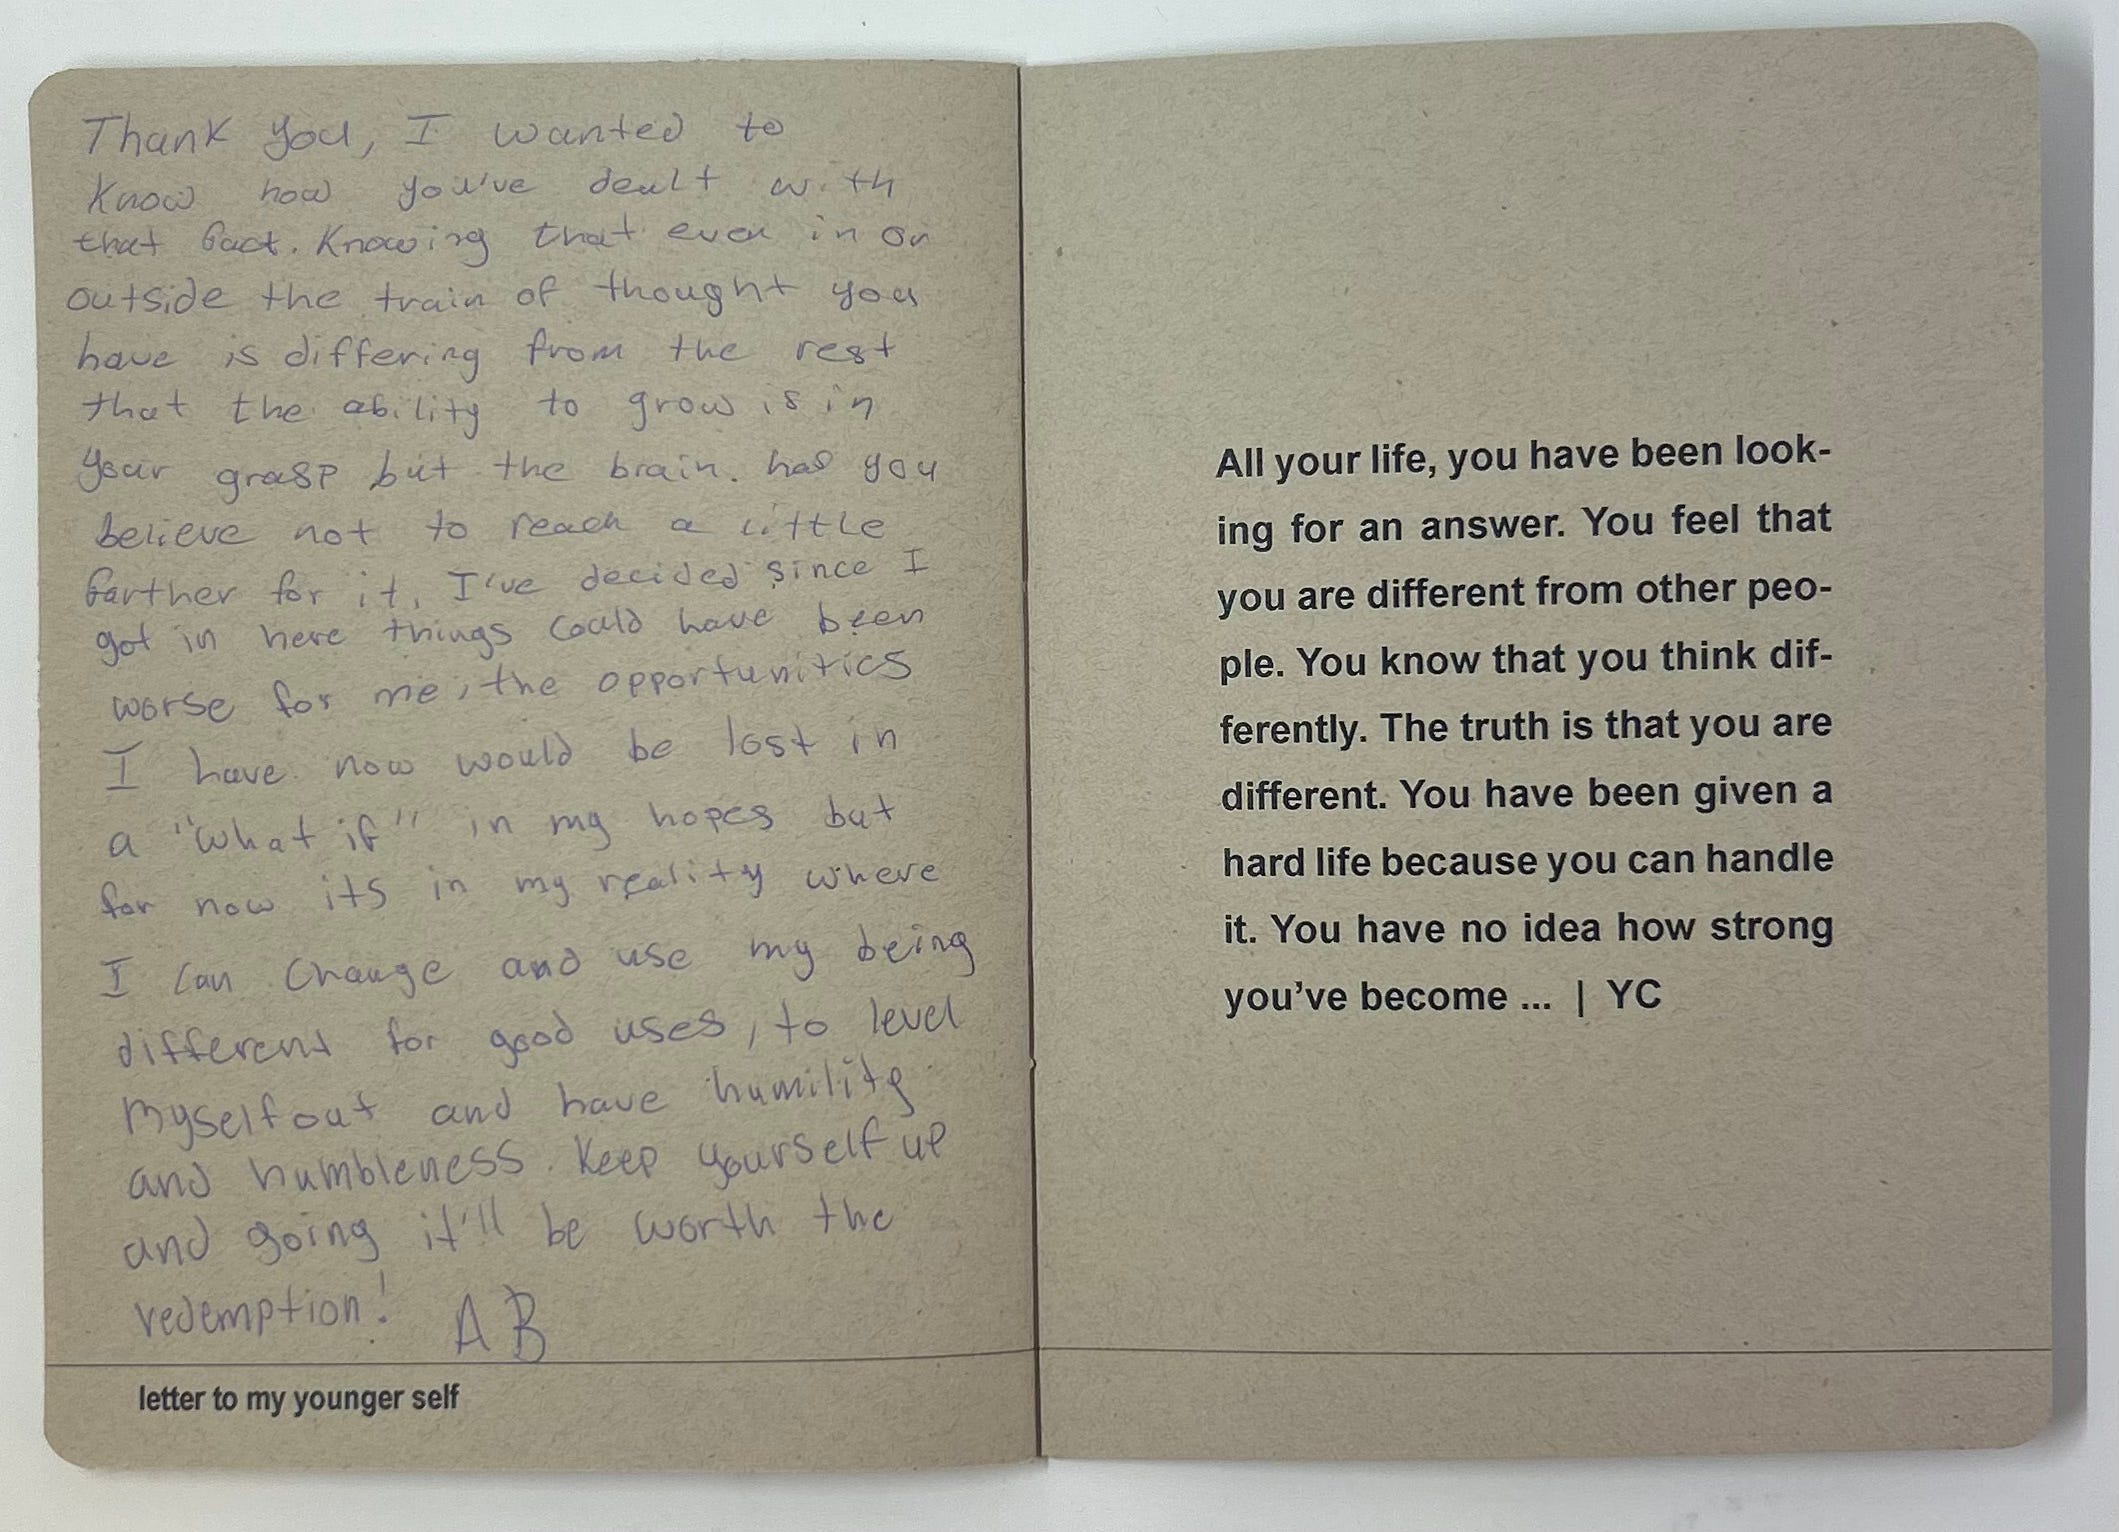 Thank you, I wanted to
know how you've dealt with
that fact. Knowing that even in or
outside the train of thought you
have is differing from the rest
that the ability to grow is in
your grasp but the brain. has you
believe not to reach a little
farther for it, I've decided since I
got in here things could have been
worse for me, the opportunities
I have now would be lost in
a "what if" in my hopes but
for now its in my reality where
I can change and use my being
different for good uses, to level
myself out and have humility
and humbleness. Keep yourself up
and going it'll be worth the
redemption! AB
letter to my younger self
All your life, you have been look-
ing for an answer. You feel that
you are different from other peo-
ple. You know that you think dif-
ferently. The truth is that you are
different. You have been given a
hard life because you can handle
it. You have no idea how strong
you've become ... | YC